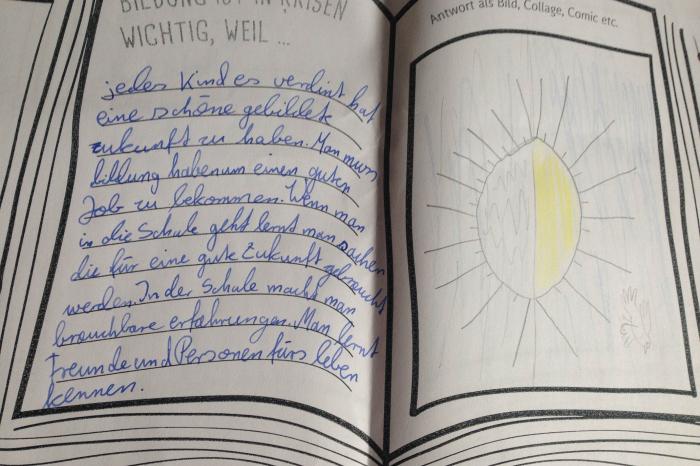 BILDUNG IST IN KRISEN
WICHTIG, WEIL ...
jedes Kind es verdint hat
eine schöne gebildete
zukunft zu haben. Man muss
bildung haben um einen guten
Job zu bekommen. Wenn man
in die Schule geht lernt man sachen
die für eine gute Zukunft gebraucht
werden. In der Schule macht man
brauchbare erfahrungen. Man lernt
Freunde und Personen fürs leben
kennen.
Antwort als Bild, Collage, Comic etc.